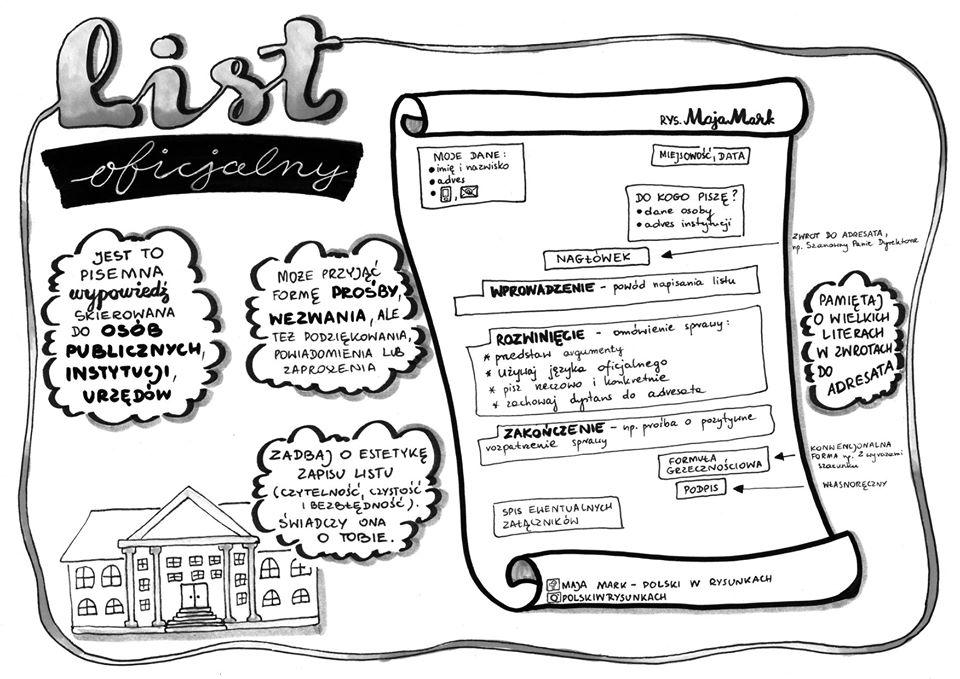 list
oficjalny
JEST TO
PISEMNA
wypowiedź
SKIEROWANA
DO OSÓB
PUBLICZNYCH,
INSTYTUCJI,
URZĘDÓW
MOŻE PRZYJĄĆ
FORMĘ PROŚBY,
WEZWANIA, ALE
TEŻ PODZIĘKOWANIA,
POWIADOMIENIA LUB
ZAPROSZENIA
ZADBAJ O ESTETYKĘ
ZAPISU LISTU
(CZYTELNOŚĆ, CZYSTOŚĆ
I BEZBŁĘDNOŚĆ).
ŚWIADCZY ONA
O TOBIE.
RYS. Maja Mark
MOJE DANE:
• imię i nazwisko
• adres
MIEJSOWOŚĆ, DATA
DO KOGO PISZĘ?
• dane osoby
• adres instytucji
NAGŁÓWEK
ZWROT DO ADRESATA,
np. Szanowny Panie Dyrektorze
WPROWADZENIE - powód napisania listu
ROZWINIĘCIE - omówienie sprawy:
* przedstaw argumenty
* używaj języka oficjalnego
* pisz rzeczowo i konkretnie
* zachowaj dystans do adresata
ZAKOŃCZENIE - np. prośba o pozytywne
rozpatrzenie sprawy
FORMUŁA
GRZECZNOŚCIOWA
KONWENCJONALNA
FORMA np. Z wyrazami
szacunku
PODPIS
WŁASNORĘCZNY
SPIS EWENTUALNYCH
ZAŁĄCZNIKÓW
PAMIĘTAJ
O WIELKICH
LITERACH
W ZWROTACH
DO
ADRESATA
MAJA MARK - POLSKI W RYSUNKACH
POLSKIWRYSUNKACH